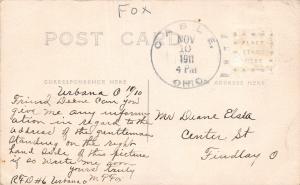 FOX
POST CARD
CABLE,
NOV
10
1911
4 PM
OHIO.
PLACE
STAMP
HERE
CORRESPONDENCE HERE
NAME AND ADDRESS HERE
Urbana O 11/10
Friend Deane Can you
give me any inform
ation in regard to the
address of the gentleman
standing on the right
hand side of this picture
if so write me soon
yours truly
RFD #6 Urbana O
Mr Deane
Center St
Findlay O